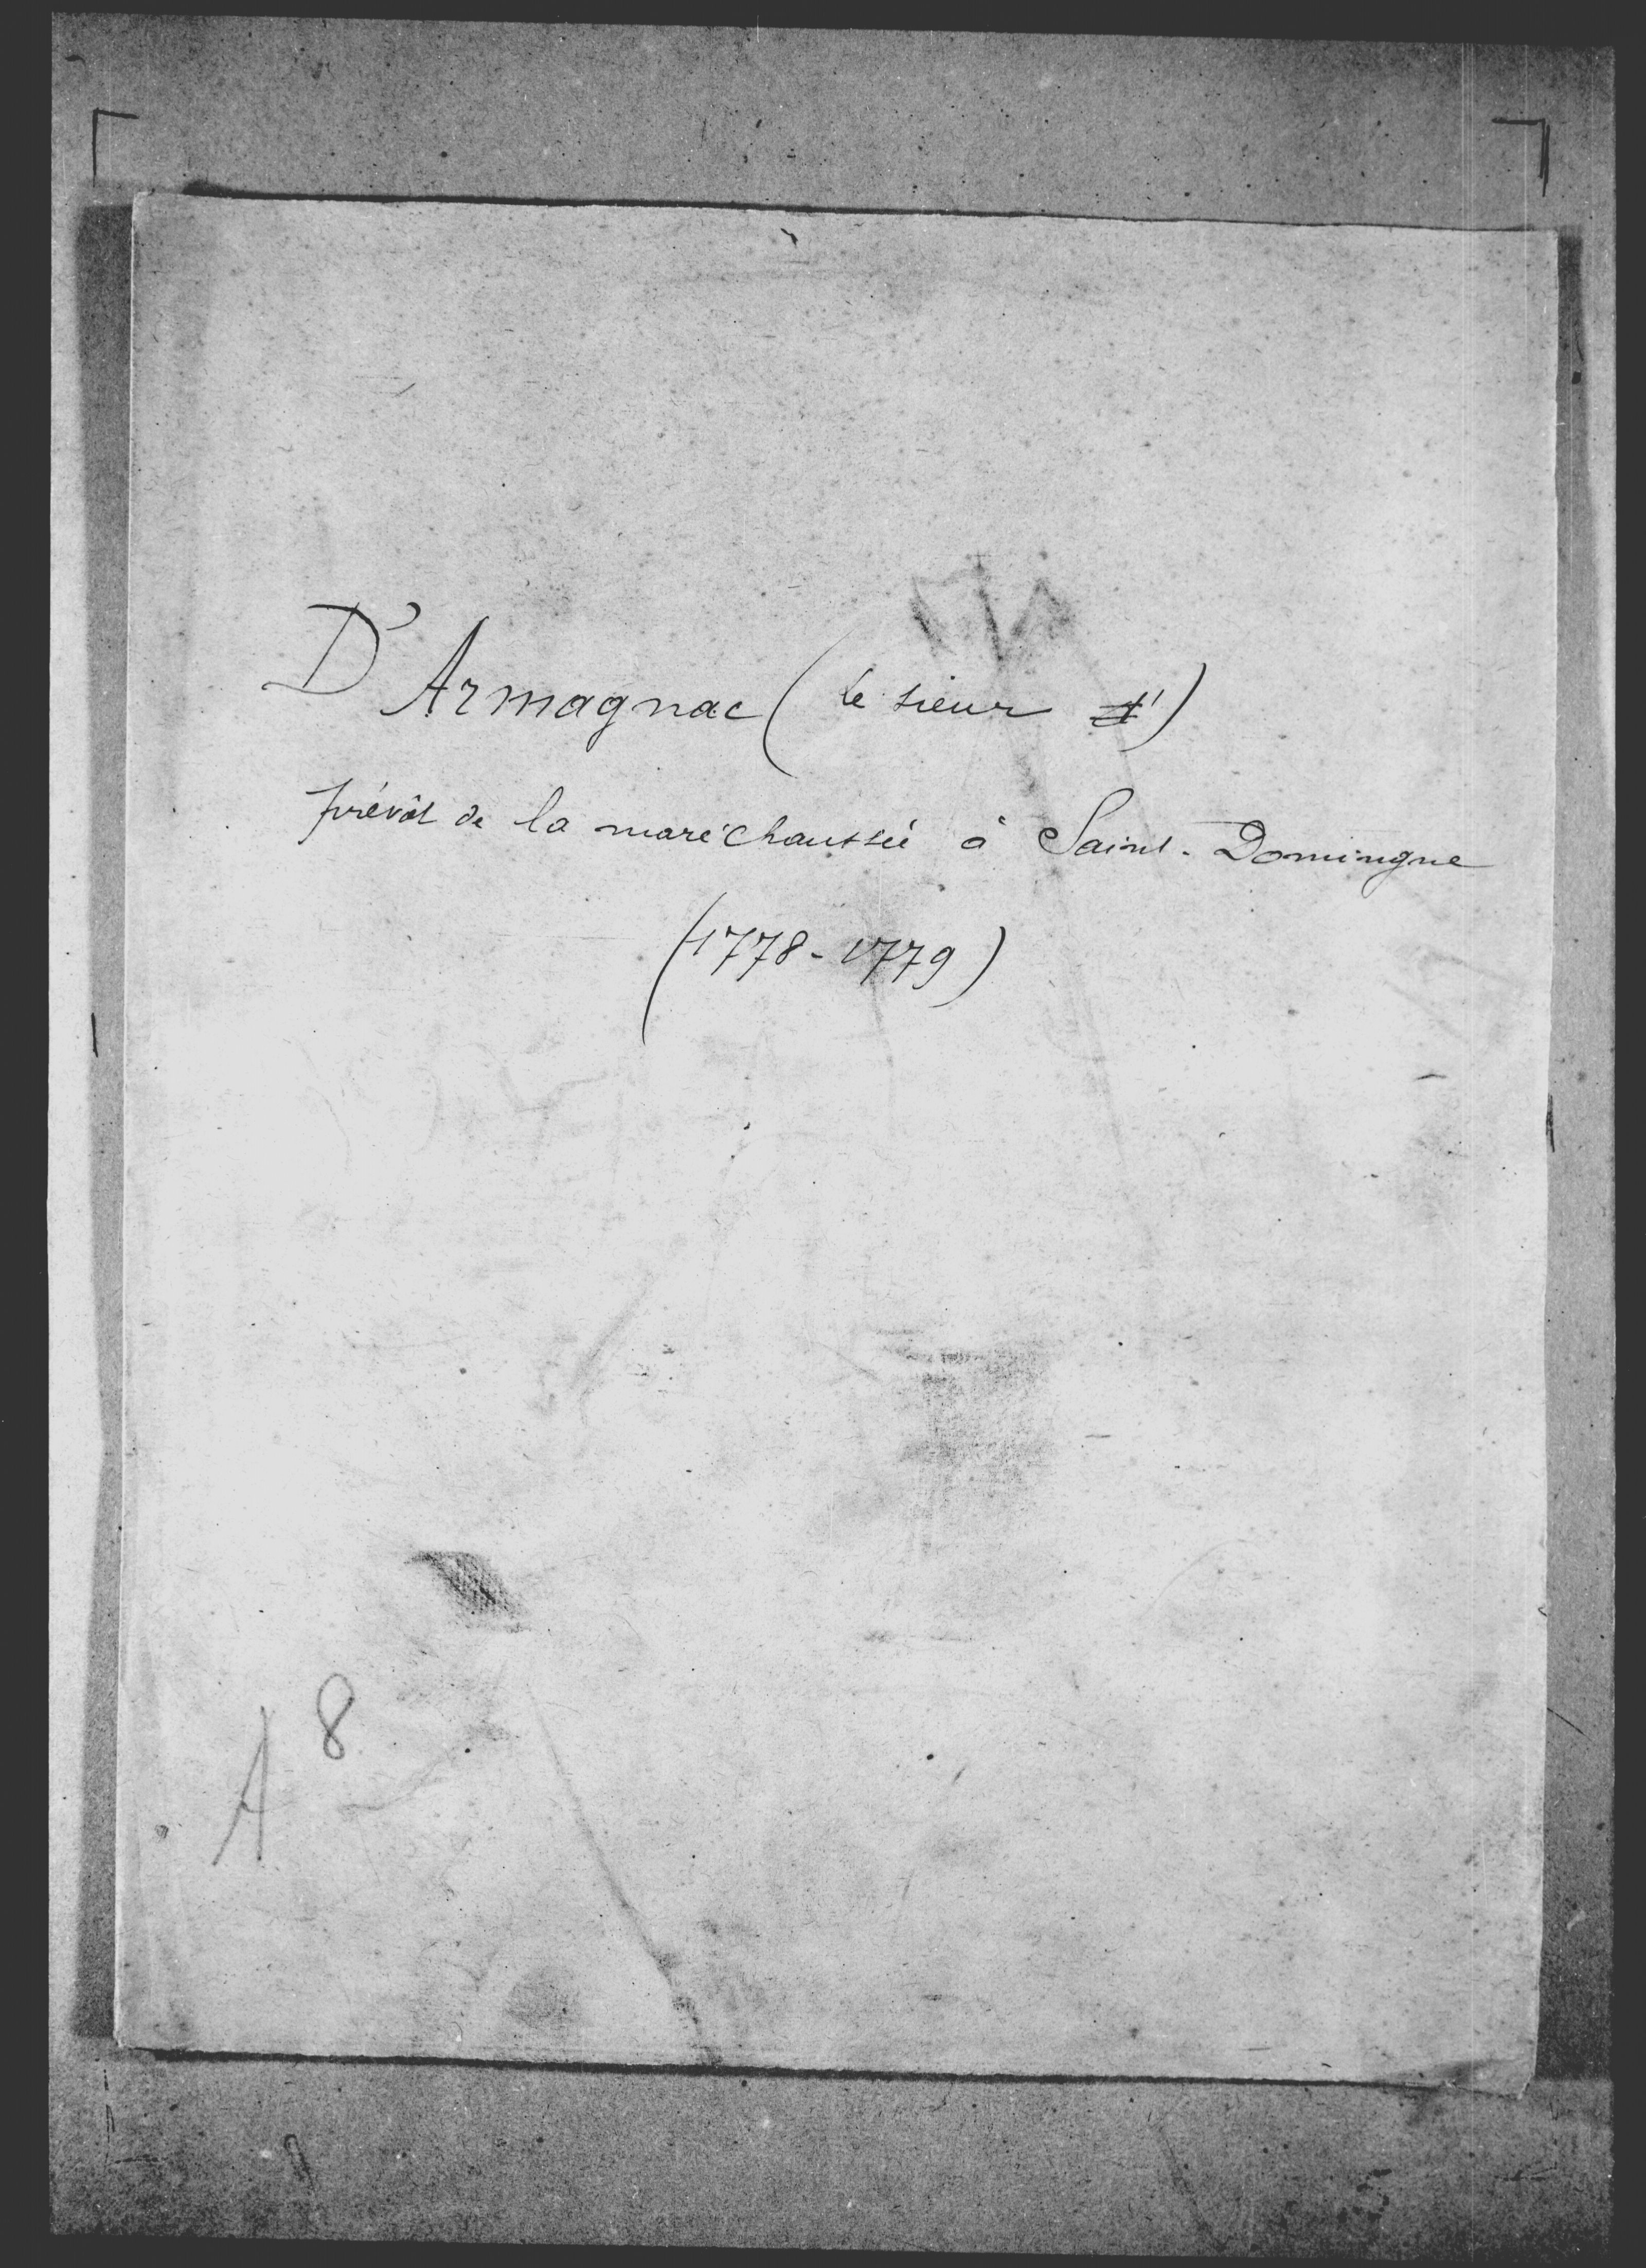 D'Armagnac (le sieur d')
prévôt de la maréchaussée à Saint-Domingue
(1778-1779)
A 8